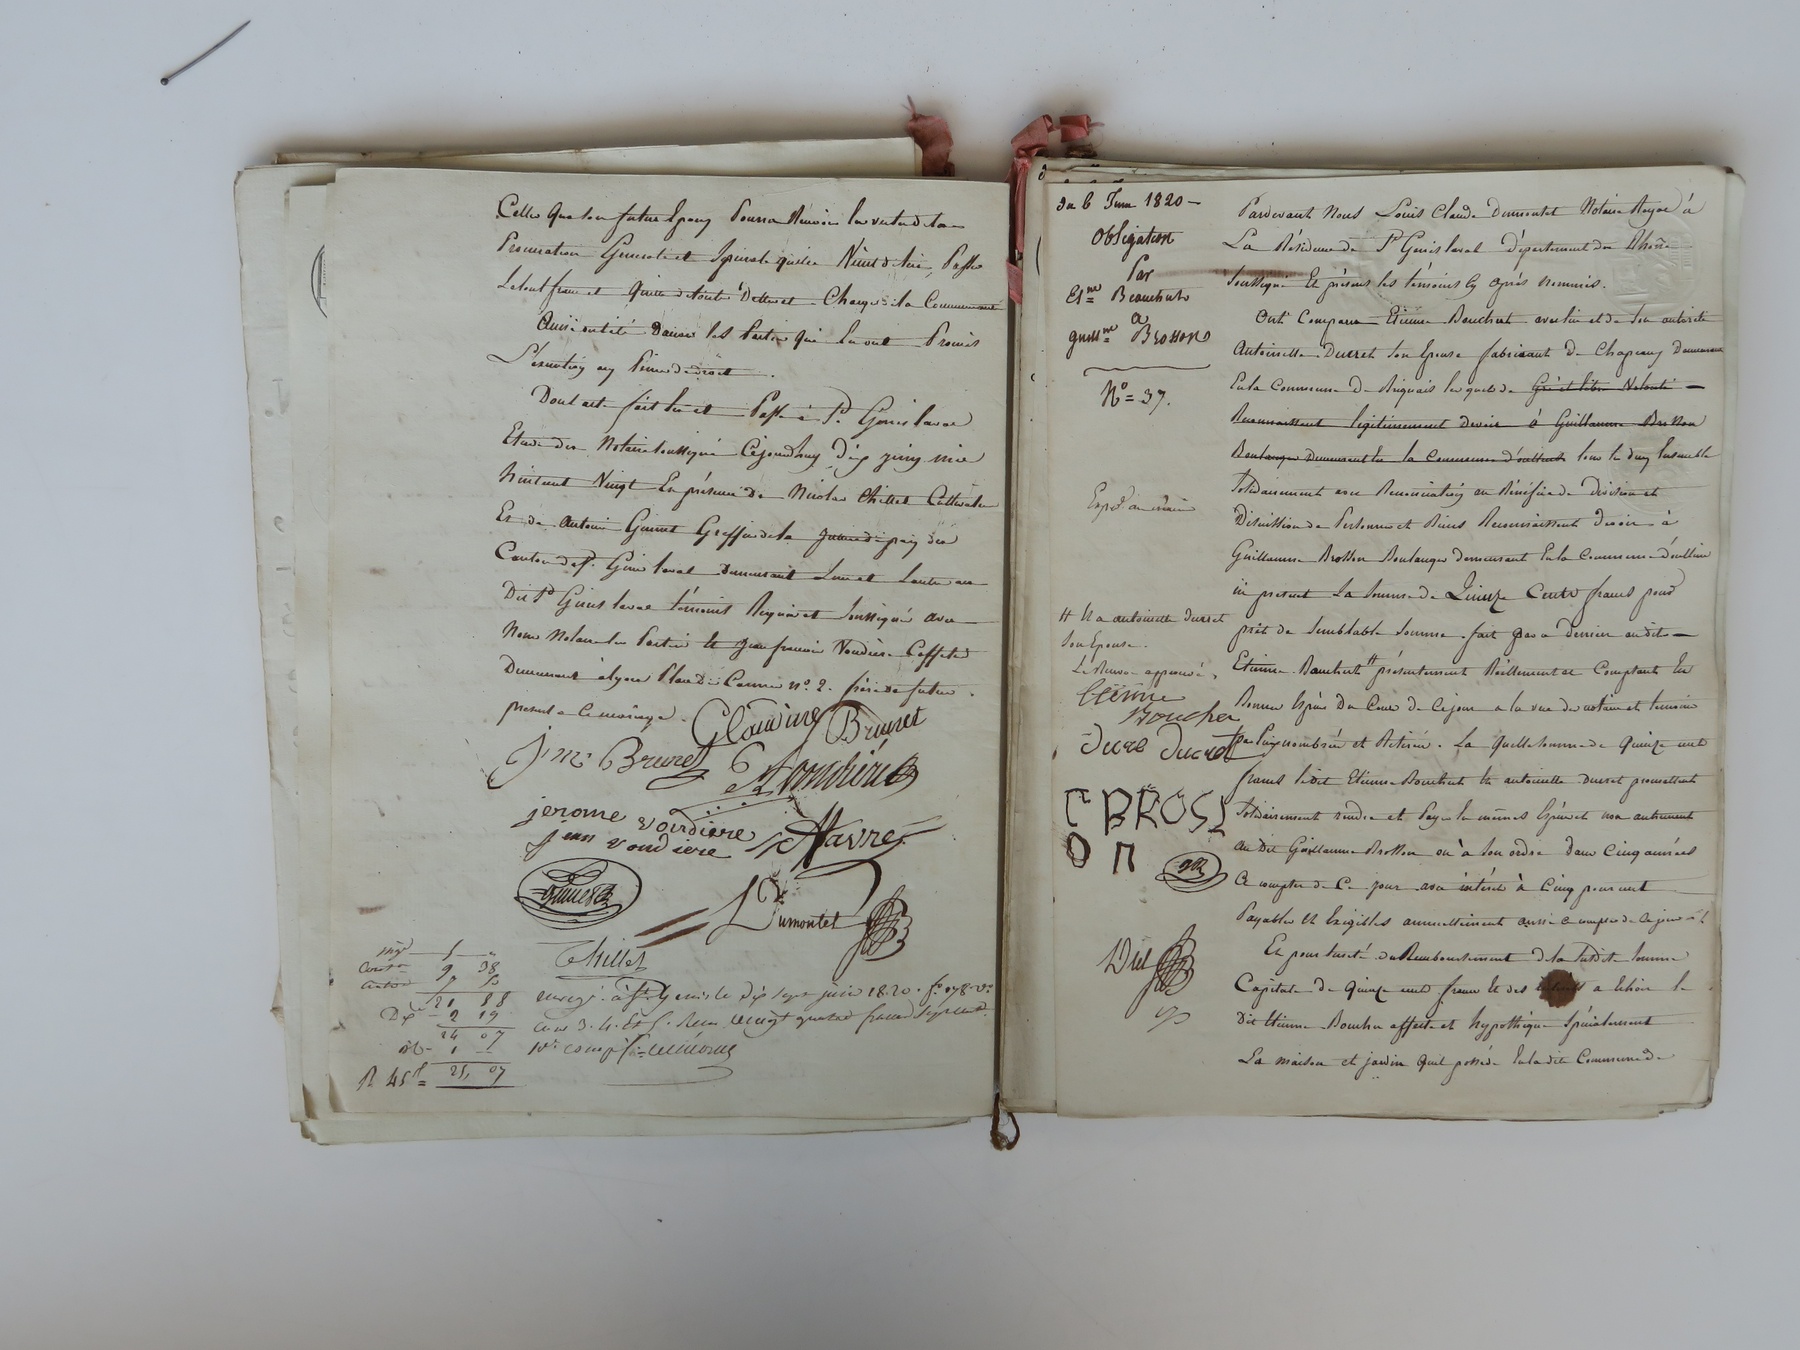 Celle que son futur Epoux Pourra Devoir la vertu de la
Procuration Generale et Speciale qu'elle Vient de lui Passer
Le tout franc et quitte de toute Dettes et Charges de la Communauté
Ainsi arrêté Dans les Parties qui L'ont Promis
L'exécution aux Peines de droit.
Dont acte fait lu et Passé à St Genis laval
Etude du Notaire soussigné Cejourdhuy Dix juin mil
huit cent Vingt En présence de Nicolas Thillet Cultivateur
Et de Antoine Greffier de la justice de paix du
Canton de St Genis laval Demeurant L'un et L'autre au
Dit St Genis laval témoins Requis et Soussignés avec
Nous Notaire les Parties et Jean françois Voudiere Coffetier
Demeurant à Lyon Place Des Carmes no. 2. frère du futur.
présent a le mariage.
Glaudine Brunet
j m Brunet
Voudière
jerome voudiere
jean voudiere
Havre
Dumontet
Thillet
9 38
21 88
2 19
24 07
1 —
R 45 25, 07
enregé à St Genis le dix sept juin 1820. fo 178 Vo
Case 3. 4. Et 5. Recu vingt quatre francs sept cent.
1er compris
Du 6 Juin 1820 —
Obligation
Par
Etne Bouchert
a
guillme Brosson
No = 37.
Expé. au même
# Et a antoinette Ducret
Son Epouse.
Le Renvoi approuvé.
Etienne
Boucher
ducre ducret
BROSS
On
Dul
Pardevant Nous Louis Claude Dumontet Notaire Royal à
La Résidence de St Genis laval Département du Rhône
Soussigné Et présens les témoins cy après nommés.
Ont Comparu Etienne Bouchert avec lui et de son autorité
Antoinette Ducret Son Epouse fabricant de Chapeaux Demeurant
En la Commune de Brignais lesquels de Gré et libre Volonté —
Reconnaissent légitimement devoir à Guillaume Brosson
Boulanger Demeurant En la Commune d'oullins tous les deux Ensemble
Solidairement avec Renonciation au Bénéfice de Division et
Discussion de Personnes et Biens Reconnaissent Devoir à
Guillaume Brosson Boulanger demeurant En la Commune d'oullins
ici présent La Somme de Quinze Cents francs pour
prêt de Semblable Somme fait par ce dernier audit —
Etienne Bouchert # présentement Réellement et Comptant En
Bonnes Espèces Du Cours de Cejour a la vue du notaire et témoins
par Lui nombrées et Retirées. La quelle Somme de Quinze cent
francs ledit Etienne Bouchert Et antoinette ducret promettent
Solidairement rendre et Payer en mêmes Espèces et non autrement
au dit Guillaume Brosson ou à Son ordre Dans Cinq années
a compter de Ce jour avec intérêt à Cinq pour cent
Payables Et Exigibles annuellement aussi a compter de Ce jour
Et pour Sureté du Remboursement de la Susdite Somme
Capitale de Quinze cent francs Et des intérêts a Echoir Le
Dit Etienne Boucher affecte et hypothèque Spécialement
La maison et jardin quil possède En la dite Commune de